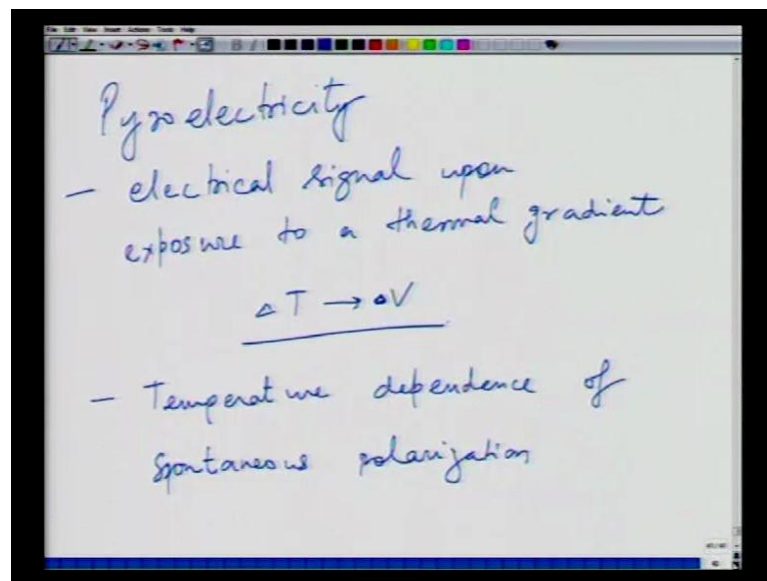 File Edit View Insert Actions Tools Help
Pyroelectricity
- electrical signal upon
exposure to a thermal gradient
△T → △V
- Temperature dependence of
spontaneous polarization